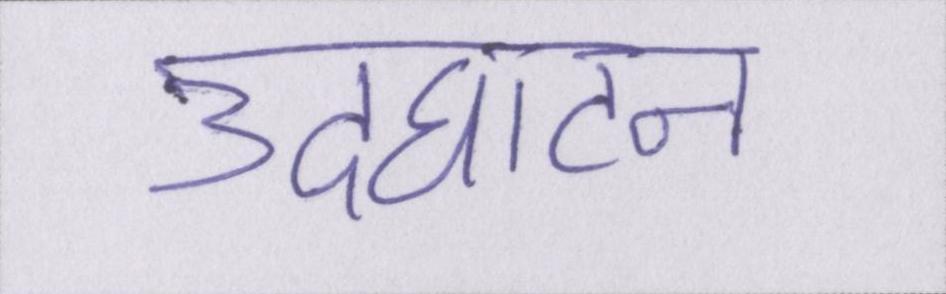 उदघाटन